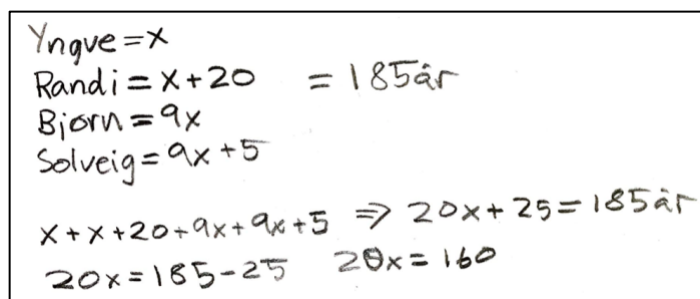 Yngve = x
Randi = x + 20 = 185 år
Bjørn = 9x
Solveig = 9x + 5
x + x + 20 + 9x + 9x + 5 ⇒ 20x + 25 = 185 år
20x = 185 - 25 20x = 160